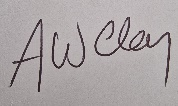 AW Clay